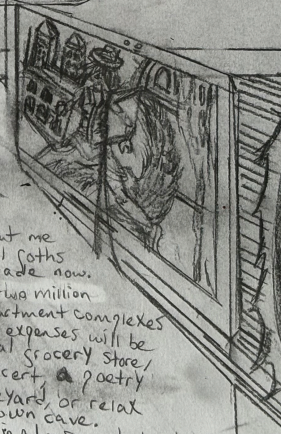 ut me
l goths
ade now.
two million
artment complexes
expenses will be
al grocery store,
cert, a poetry
eyard, or relax
own cave.